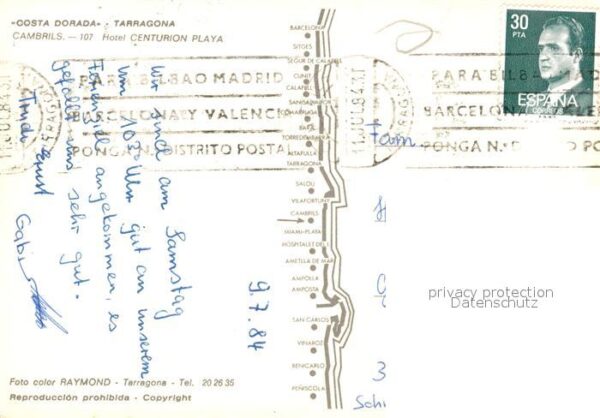 «COSTA DORADA» - TARRAGONA
CAMBRILS. — 107 Hotel CENTURION PLAYA
PARA BILBAO MADRID
BARCELONA Y VALENCIA
PONGA N.º DISTRITO POSTAL
PARA BILBAO MADRID
BARCELONA
PONGA N.º D PO
30
PTA
ESPAÑA
CORREOS
Wir sind am Samstag
um 10³⁰ Uhr gut an unserem
Ferienziel angekommen, es
gefällt uns sehr gut.
Gabi
9.7.84
BARCELONA
SITGES
SEGUR DE CALAFELL
CUNIT
CALAFELL
TORREDEMBARRA
ALTAFULLA
TARRAGONA
SALOU
VILAFORTUNY
CAMBRILS
MIAMI-PLAYA
HOSPITALET DEL I.
AMETLLA DE MAR
AMPOLLA
AMPOSTA
SAN CARLOS
VINAROZ
BENICARLO
PEÑISCOLA
Fam
3
Schi
privacy protection
Datenschutz
Foto color RAYMOND - Tarragona - Tel. 20 26 35
Reproducción prohibida - Copyright